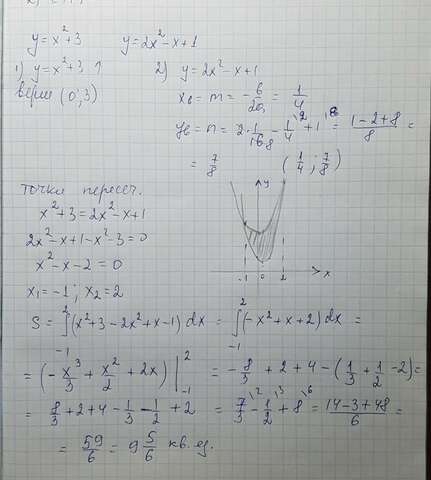 y = x² + 3    y = 2x² - x + 1
1) y = x² + 3 ↑    2) y = 2x² - x + 1
(0; 3)    xв = m = - b/2a = 1/4
yв = n = 2·1/16 - 1/4 + 1 = (1 - 2 + 8)/8 =
= 7/8    (1/4 ; 7/8)
точки пересеч.
x² + 3 = 2x² - x + 1
2x² - x + 1 - x² - 3 = 0
x² - x - 2 = 0
x₁ = -1 ; x₂ = 2
y
-1 0 2 x
S = ∫₋₁² (x² + 3 - 2x² + x - 1) dx = ∫₋₁² (-x² + x + 2) dx =
= (- x³/3 + x²/2 + 2x) |₋₁² = - 8/3 + 2 + 4 - (1/3 + 1/2 - 2) =
= 8/3 + 2 + 4 - 1/3 - 1/2 + 2 = 7/3 - 1/2 + 8 = (14 - 3 + 48)/6 =
= 59/6 = 9 5/6 кв. ед.